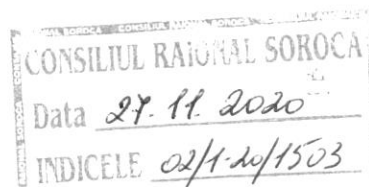 CONSILIUL RAIONAL SOROCA
Data 27.11.2020
INDICELE 02/1-20/1503